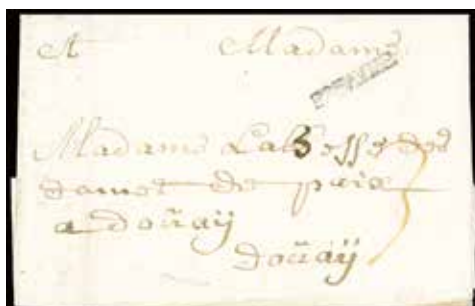 A Madame
Madame Labbesse des
dames de paix
a doüaÿ
doüaÿ